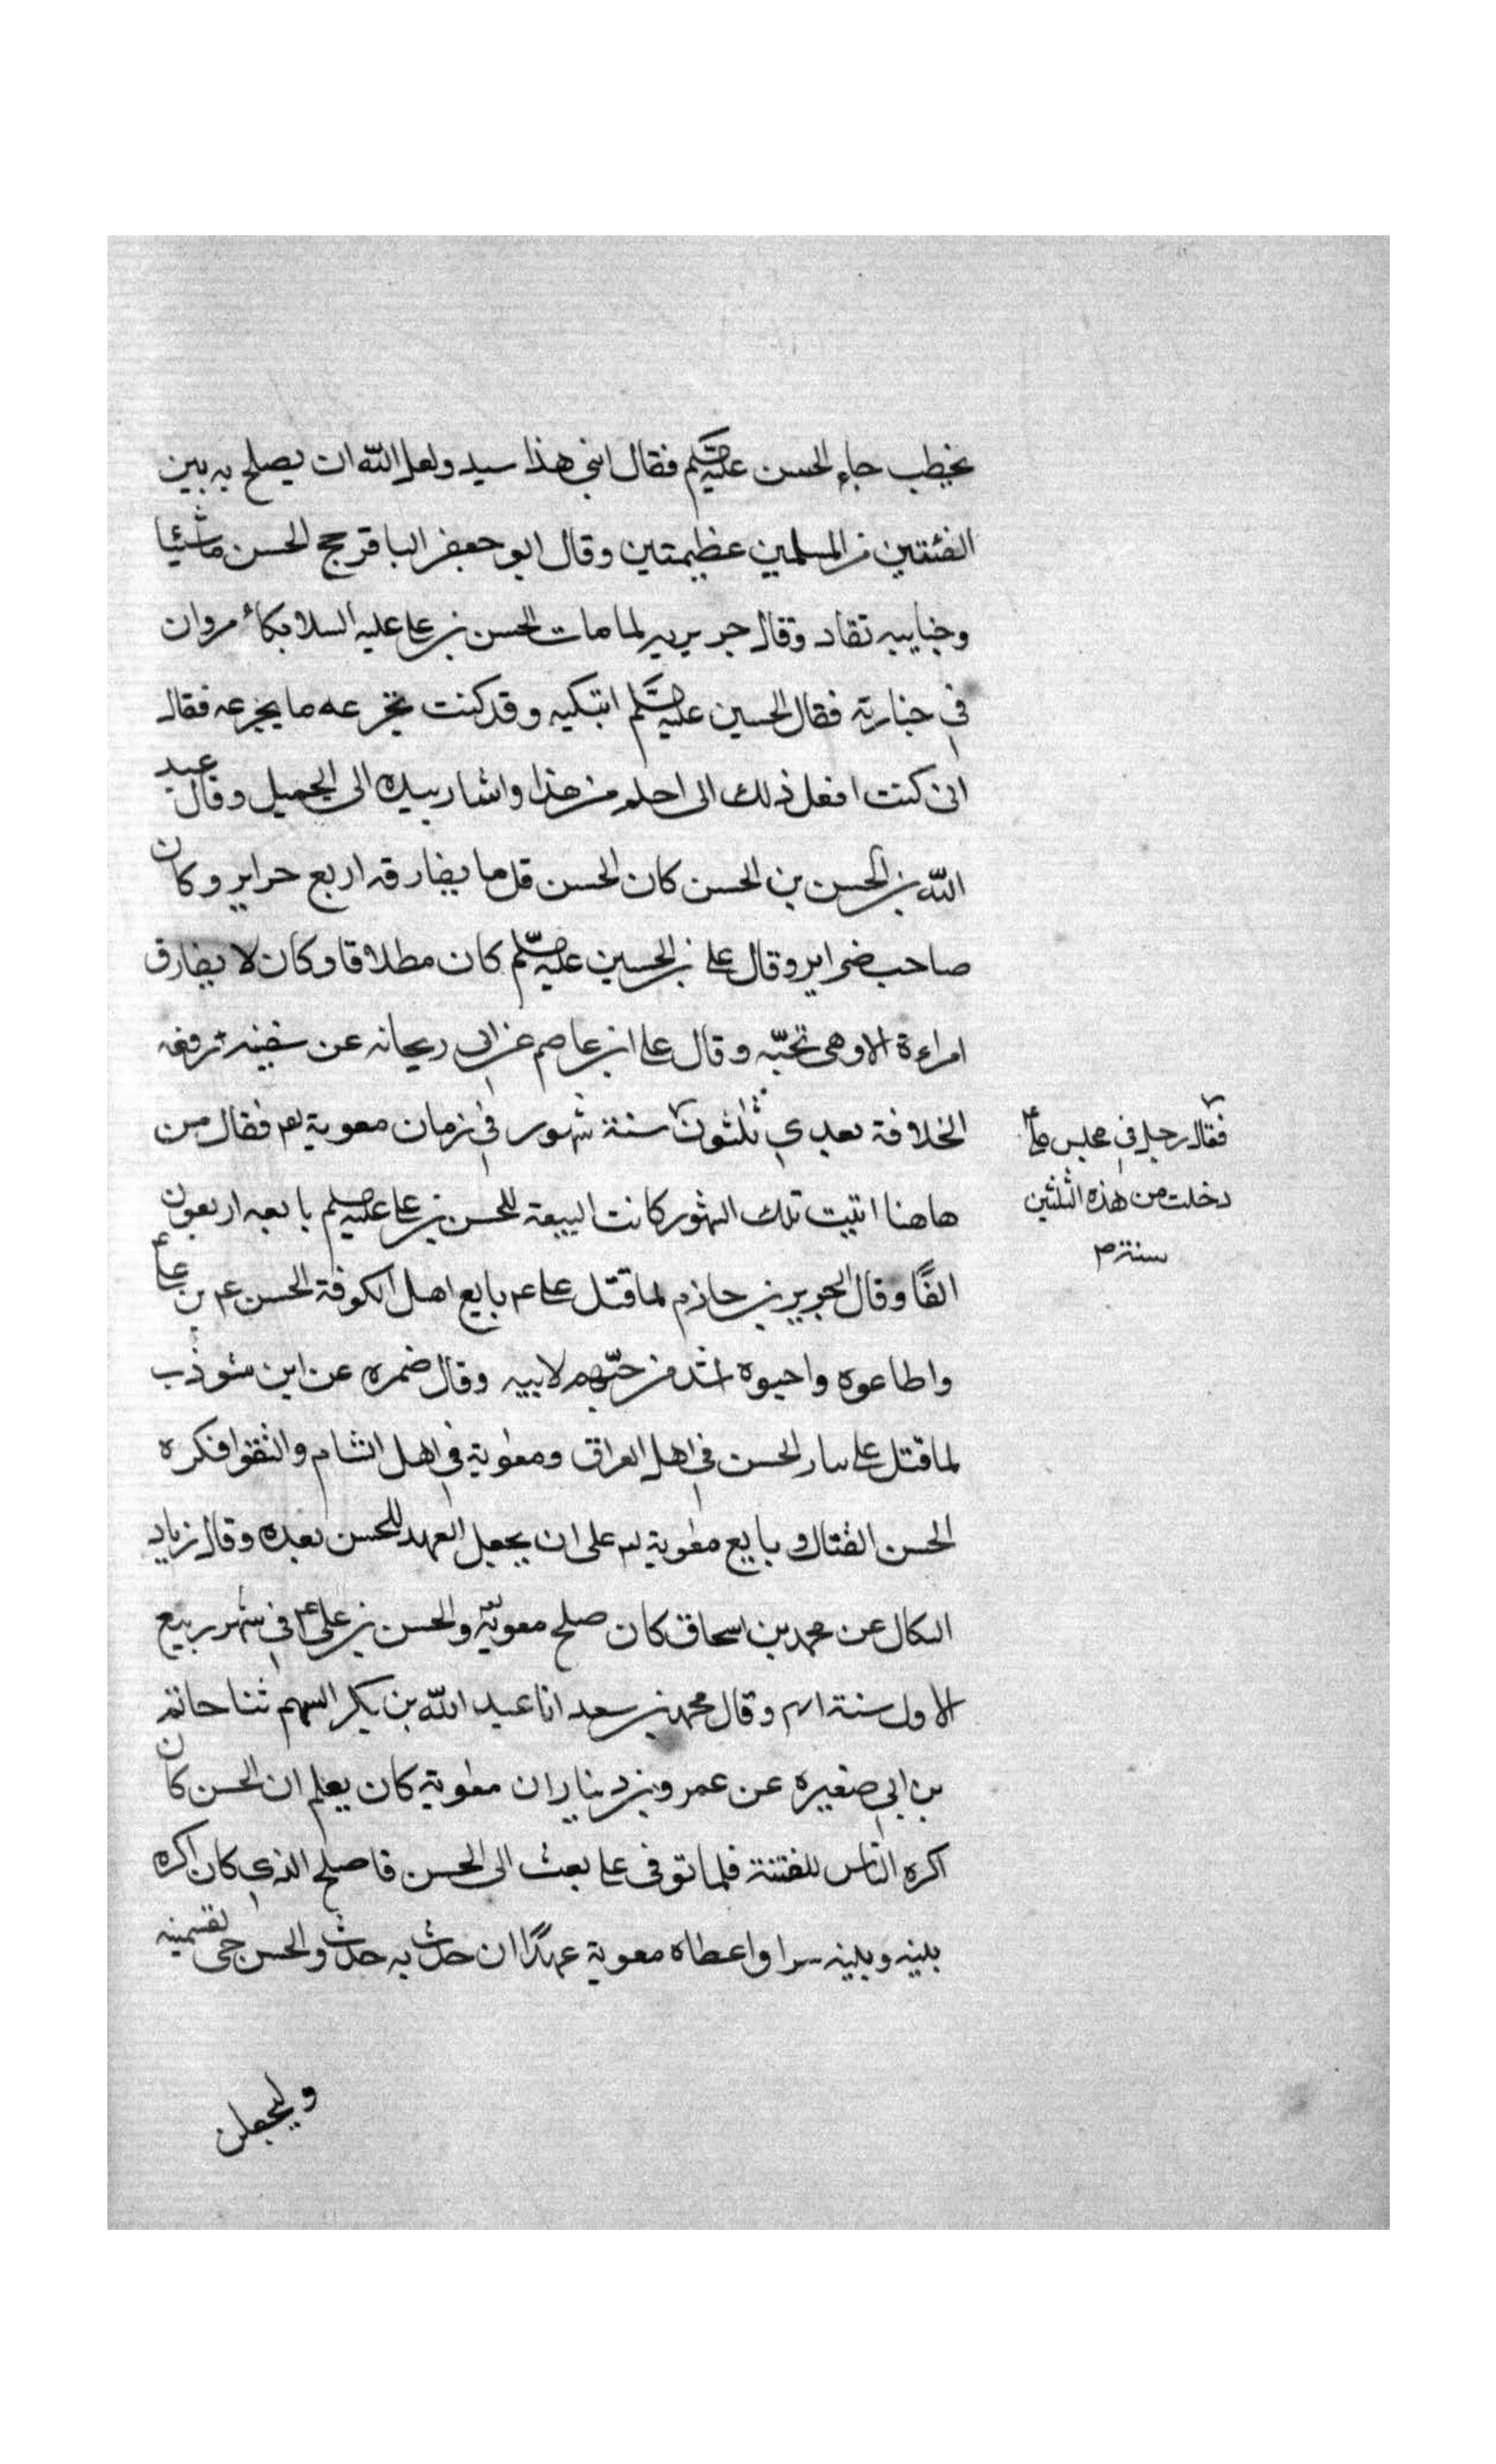 يخطب جاء الحسن عليه السلم فقال ابني هذا سيد ولعل الله ان يصلح به بين
الفئتين من المسلمين عظيمتين وقال ابو جعفر الباقر حج الحسن ماشيا
وجنايبه تقاد وقال جويريه لما مات الحسن بن علي عليه السلام بكاء مروان
في جنازته فقال الحسين عليه السلم اتبكيه وقد كنت تجرعه ما يجرعه فقال
اني كنت افعل ذلك الى احلم من هذا واشار بيده الى الجميل وقال عبد
الله بن الحسن بن الحسن كان الحسن قل ما يفارقه اربع حراير وكان
صاحب ضراير وقال علي بن الحسين عليه السلم كان مطلاقا وكان لا يفارق
امراءة الا وهي تحبّه وقال علي ابن عاصم عن ابي ريحانه عن سفينه ترفعه
الخلافة بعدي ثلثون سنة شهور في زمان معوية فقال من
فقال رجل في مجلس علي
دخلت من هذه الثلثين
سنة م
هاهنا اتيت تلك الشهور كانت البيعة للحسن بن علي عليه السلم بايعه اربعون
الفًا وقال الجرير بن حازم لما قتل علي ع م بايع اهل الكوفة الحسن ع م بن علي
واطاعوه واحبوه اشد من حبّهم لابيه وقال ضمره عن ابن شوذب
لما قتل علي سار الحسن في اهل العراق ومعوية في اهل الشام والتقوا فكره
الحسن القتال و بايع معوية على ان يجعل العهد للحسن بعده وقال زياد
البكال عن محمد بن اسحاق كان صلح معوية والحسن بن علي في شهر ربيع
الاول سنة ٤١ وقال محمد بن سعد انا عبد الله بن بكر السهم ثنا حاتم
بن ابي صغيره عن عمرو بن دينار ان معوية كان يعلم ان الحسن كان
اكره الناس للفتنة فلما توفى علي بعث الى الحسن فاصلح الذي كان اكره
بينه وبينه سرا واعطاه معوية عهدًا ان حدث به حدث والحسن حي
وليجعلن